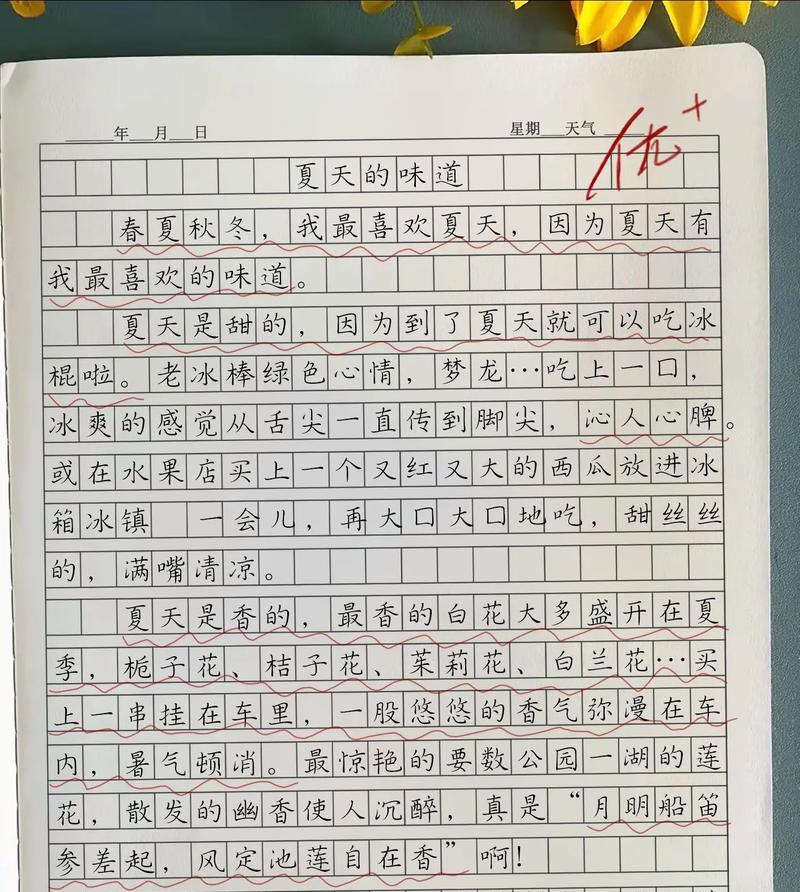 ____年___月___日 星期___天气____
优+
夏天的味道
春夏秋冬，我最喜欢夏天，因为夏天有
我最喜欢的味道。
夏天是甜的，因为到了夏天就可以吃冰
棍啦。老冰棒绿色心情，梦龙…吃上一口，
冰爽的感觉从舌尖一直传到脚尖，沁人心脾。
或在水果店买上一个又红又大的西瓜放进冰
箱冰镇 一会儿，再大口大口地吃，甜丝丝
的，满嘴清凉。
夏天是香的，最香的白花大多盛开在夏
季，栀子花、桔子花、茱莉花、白兰花…买
上一串挂在车里，一股悠悠的香气弥漫在车
内，暑气顿消。最惊艳的要数公园一湖的莲
花，散发的幽香使人沉醉，真是“月明船笛
参差起，风定池莲自在香”啊！